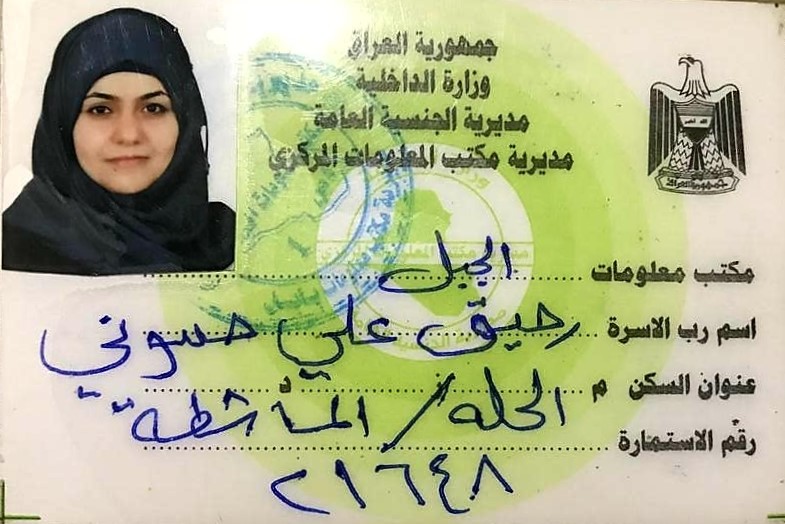 جمهورية العراق
وزارة الداخلية
مديرية الجنسية العامة
مديرية مكتب المعلومات المركزي
مكتب معلومات الجبل
اسم رب الاسرة رحيق علي حسوني
عنوان السكن م الحله / الماشطة د
رقم الاستمارة ٢١٦٤٨